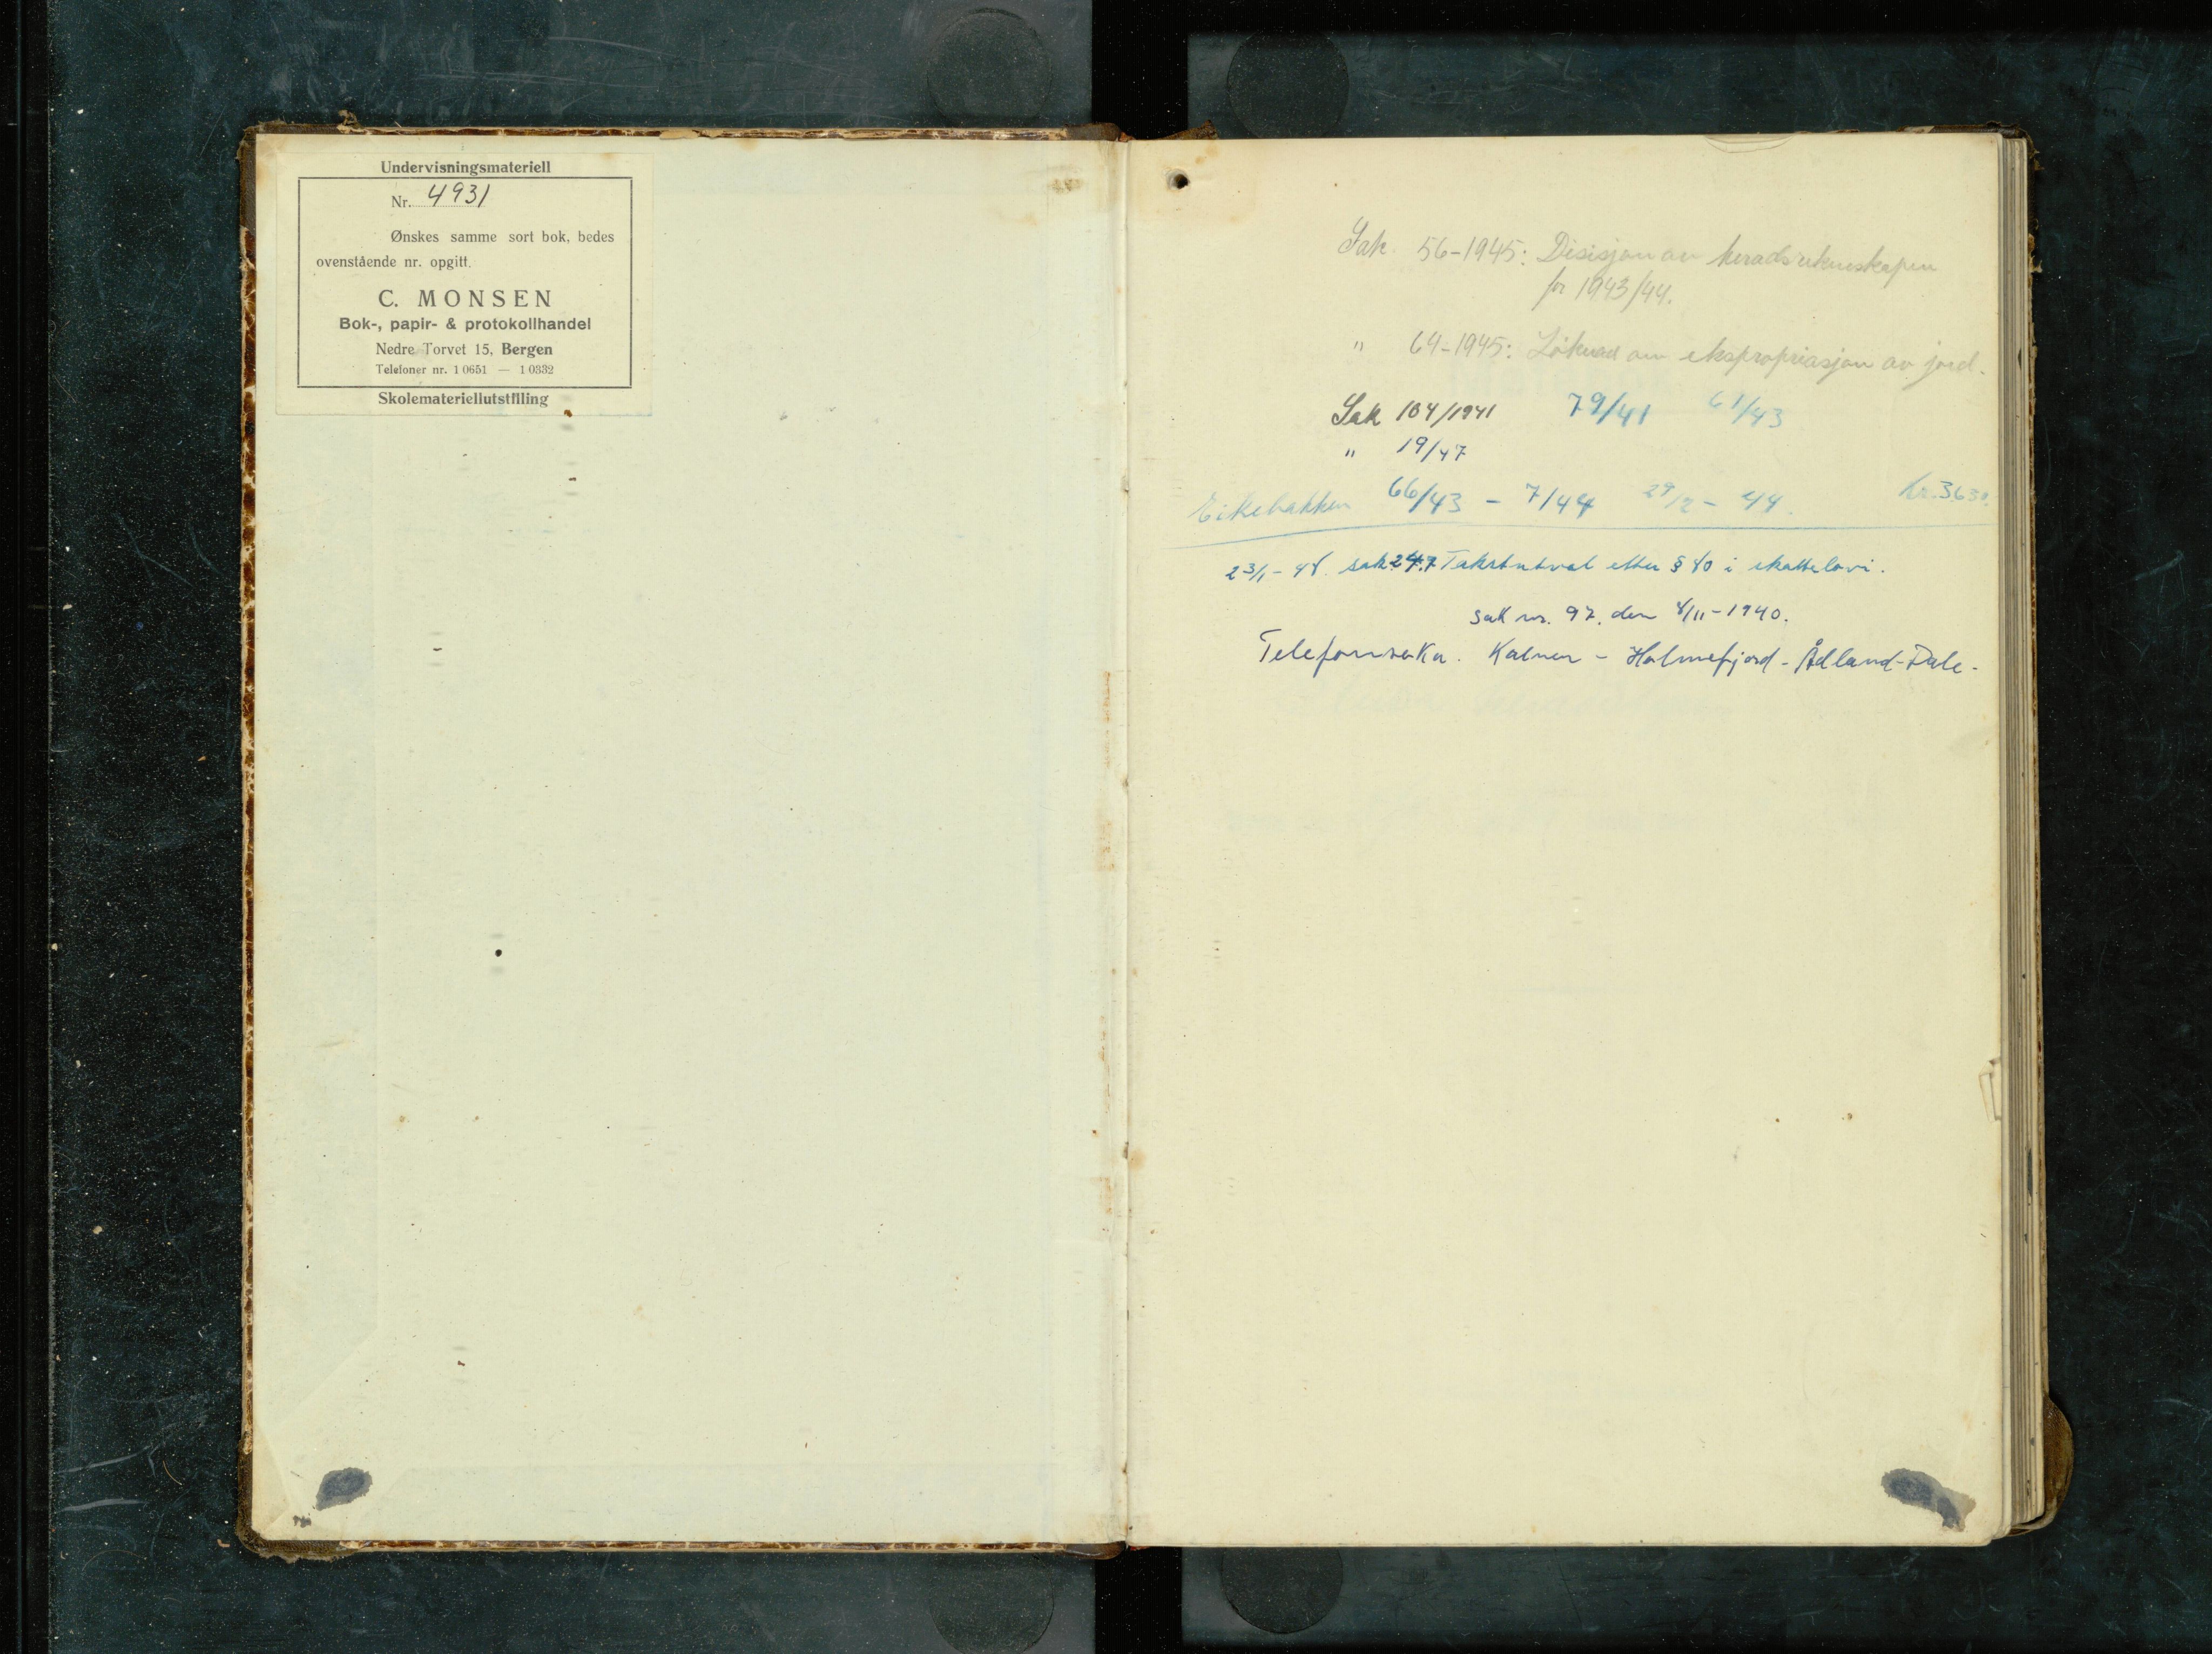 Undervisningsmateriell
Nr. 4931
Ønskes samme sort bok, bedes
ovenstående nr. opgitt.
C. MONSEN
Bok-, papir- & protokollhandel
Nedre Torvet 15, Bergen
Telefoner nr. 10651 — 10332
Skolemateriellutstilling
Sak. 56-1945: Disisjon av heradsrekneskapen
for 1943/44.
" 64-1945: Söknad om ekspropriasjon av jord.
Sak 104/1941 79/41 61/43
" 19/47
Eikebakken 66/43 - 7/44 29/2 - 44. kr. 3630.
23/1-48. sak 247 Takstutval etter § 80 i skattelovi.
Sak nr. 97. den 8/11-1940.
Holmefjord - Ådland-Dale-